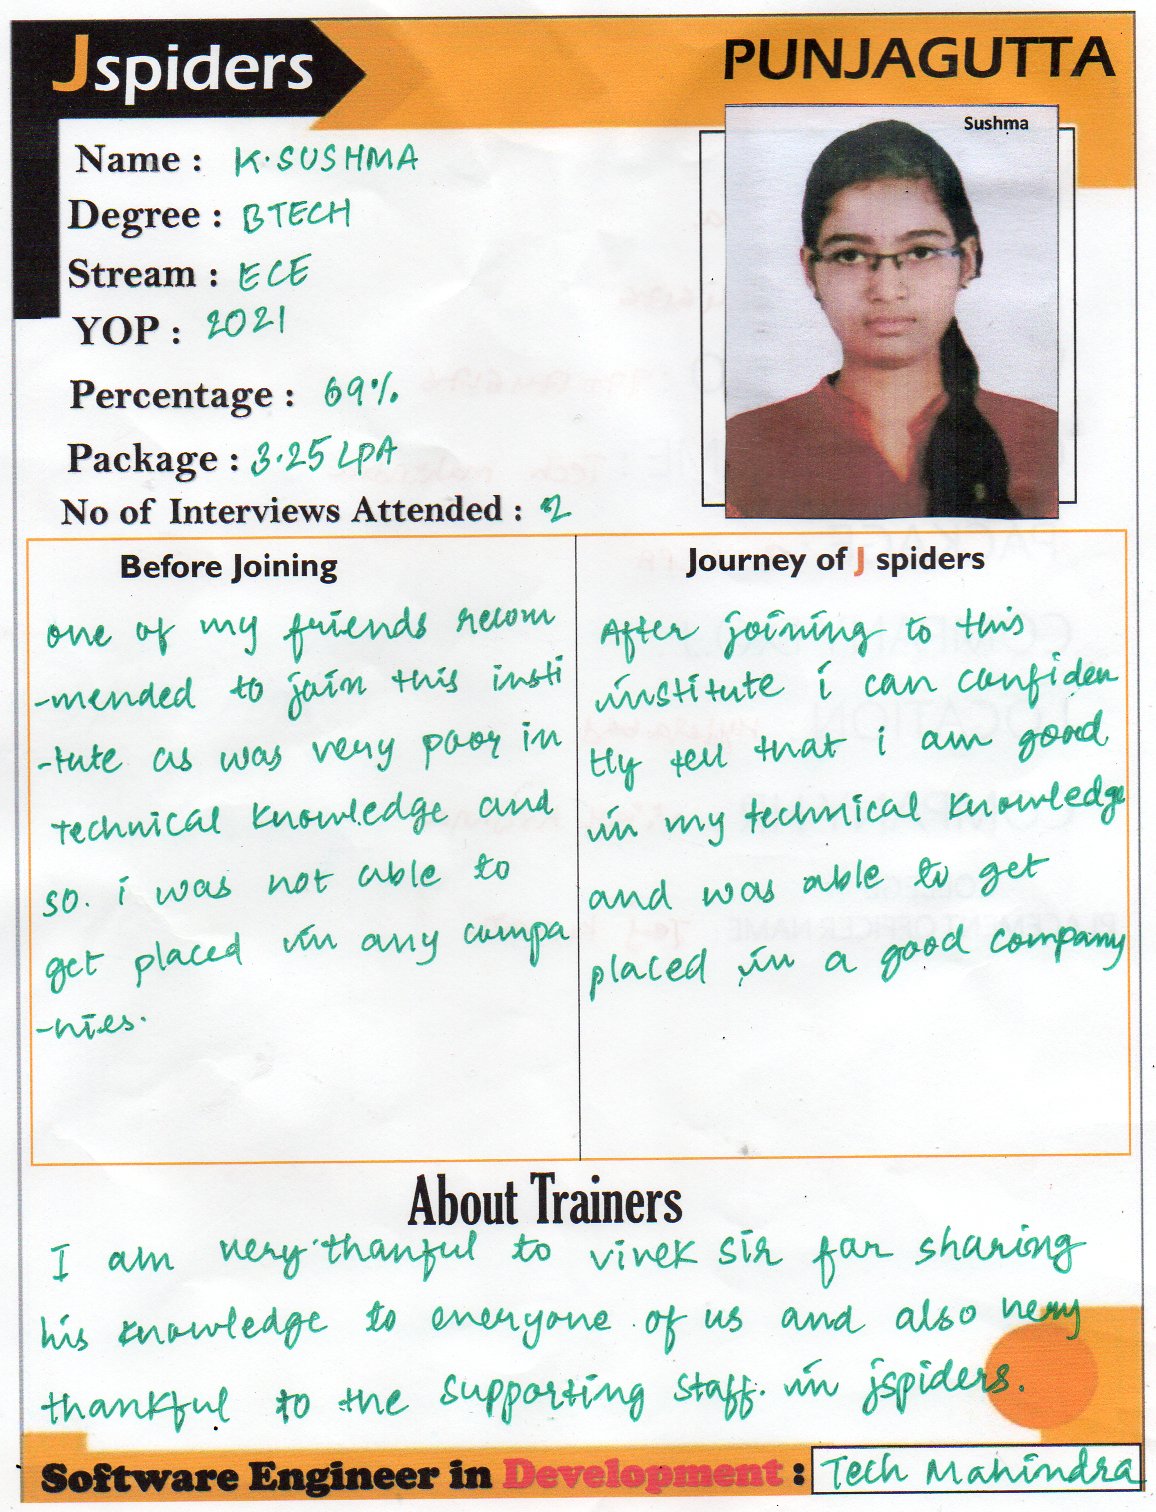 Jspiders
PUNJAGUTTA
Sushma
Name : K.SUSHMA
Degree : BTECH
Stream : ECE
YOP : 2021
Percentage : 69%
Package : 3.25 LPA
No of Interviews Attended : 2
Before Joining
one of my friends recom
-mended to join this insti
-tute as was very poor in
technical knowledge and
so. i was not able to
get placed in any compa
-nies.
Journey of J spiders
After joining to this
institute i can confiden
tly tell that i am good
in my technical knowledge
and was able to get
placed in a good company
About Trainers
I am very thanful to vivek sir for sharing
his knowledge to everyone of us and also very
thankful to the supporting staff. in jspiders.
Software Engineer in Development : Tech Mahindra